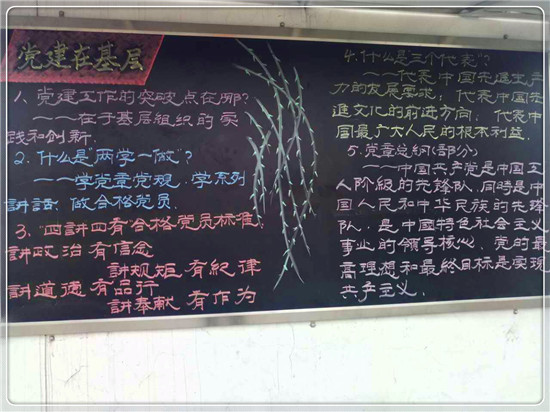 党建在基层
1、党建工作的突破点在哪?
———在于基层组织的实
践和创新.
2.什么是"两学一做"?
———学党章党规.学系列
讲話.做合格党员.
3、"四讲四有"合格党员标准:
講政治 有信念
講規矩 有紀律
講道德 有品行
講奉献 有作为
4.什么是"三个代表"?
———代表中国先進生产
力的发展要求,代表中国先
進文化的前進方向,代表中
国最广大人民的根本利益.
5.党章总纲(部分)
——中国共产党是中国工
人阶级的先锋队.同時是中
国人民和中华民族的先锋
队.是中国特色社会主义
事业的领导核心.党的最
高理想和最終目标是实現
共产主义.